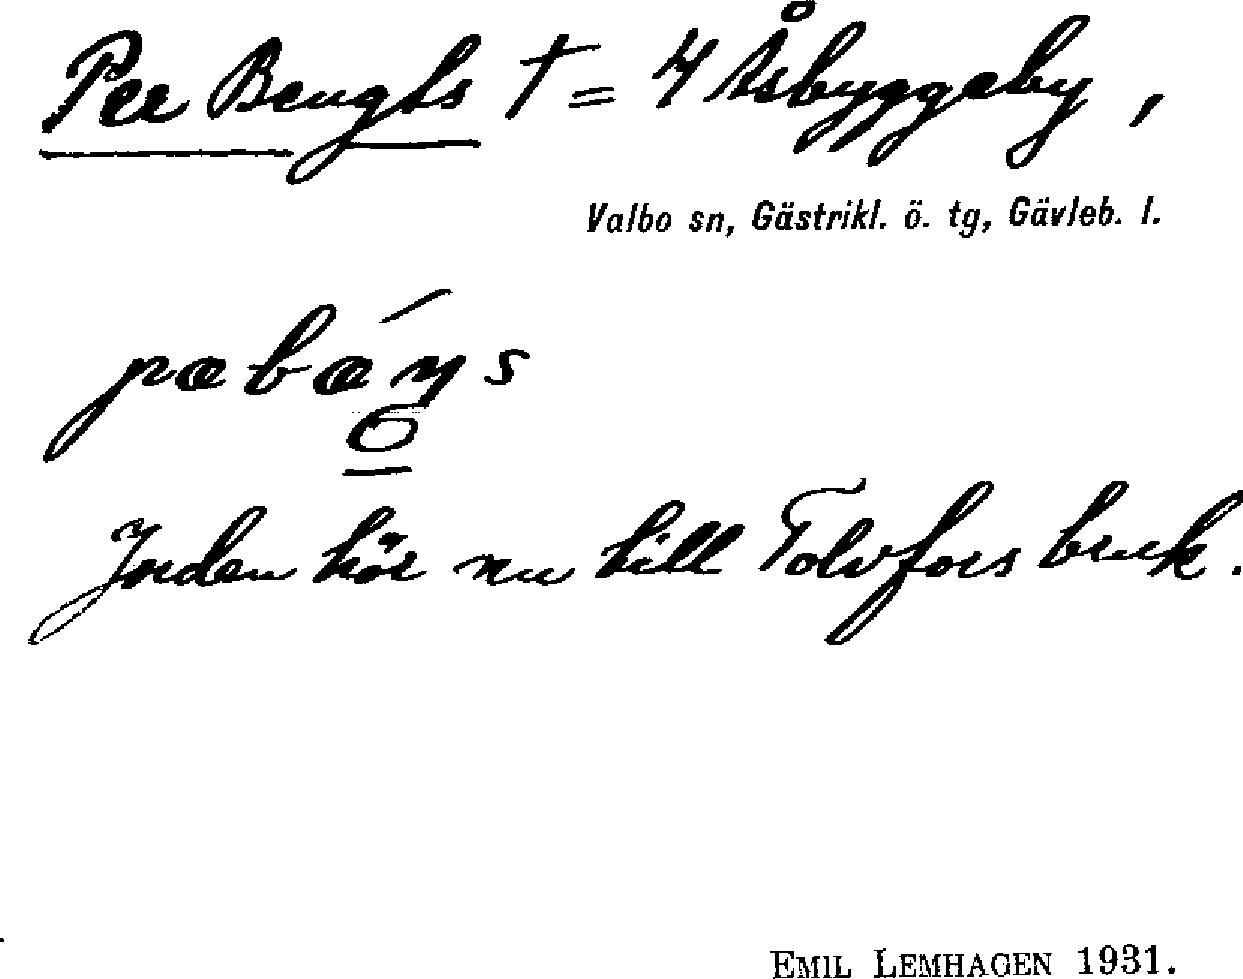 Per Bengts † = 4 Åsbyggeby,
Valbo sn, Gästrikl. ö. tg, Gävleb. l.
Jorden hör nu till Tolvfors bruk.
EMIL LEMHAGEN 1931.